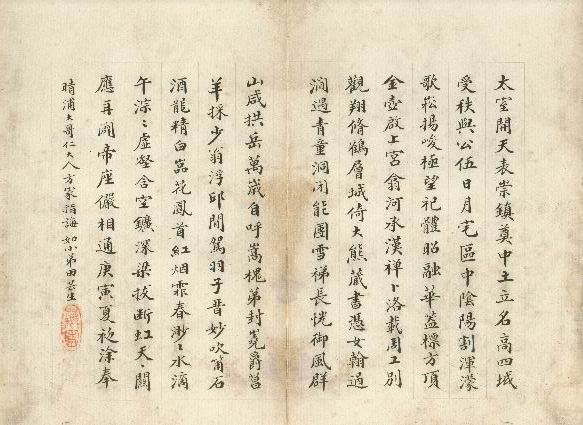 太室開天表崇鎮奠中土立名高四域
受秩與公伍日月宅區中陰陽割渾濛
歌崧揚峻極望祀體昭融華蓋標方頂
金壺啟上宮翁河承漢禪卜洛載周工別
觀翔脩鶴層城倚大熊藏書憑女翰過
澗過青童洞閉能團雪梯長恍御風群
山咸拱岳萬歲自呼嵩槐弟封堯爵菖
羊採少翁浮邱閒駕羽子晉妙吹笛石
酒龍精白嵓花鳳首紅烟霏春渺〻水滴
午淙〻虛壑含空鑛深梁拔斷虹天〻關
應再闢帝座儼相通庚寅夏 塗奉
晴浦大哥仁大人方家指誨 如小弟田 生